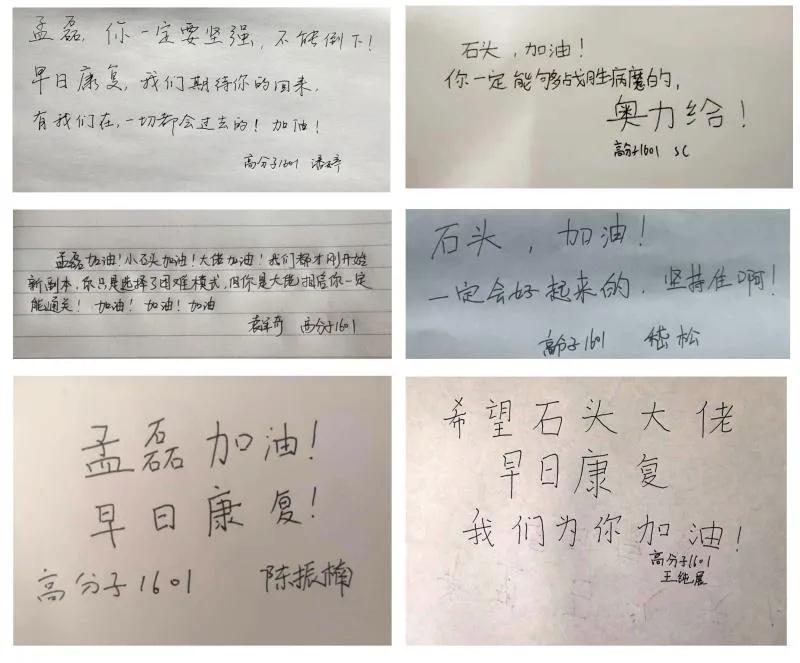 孟磊,你一定要坚强,不能倒下!
早日康复,我们期待你的回来,
有我们在,一切都会过去的!加油!
高分子1601 潘婷
石头,加油!
你一定能够战胜病魔的,
奥力给!
高分子1601 SC
孟磊加油!小石头加油!大佬加油!我们都才刚开始
新副本,你只是选择了困难模式,但你是大佬,相信你一定
能通关! 加油! 加油! 加油
高分子1601
石头,加油!
一定会好起来的,坚持住啊!
高分子1601 嵇松
孟磊加油!
早日康复!
高分子1601 陈振楠
希望石头大佬
早日康复
我们为你加油!
高分子1601
王纯展